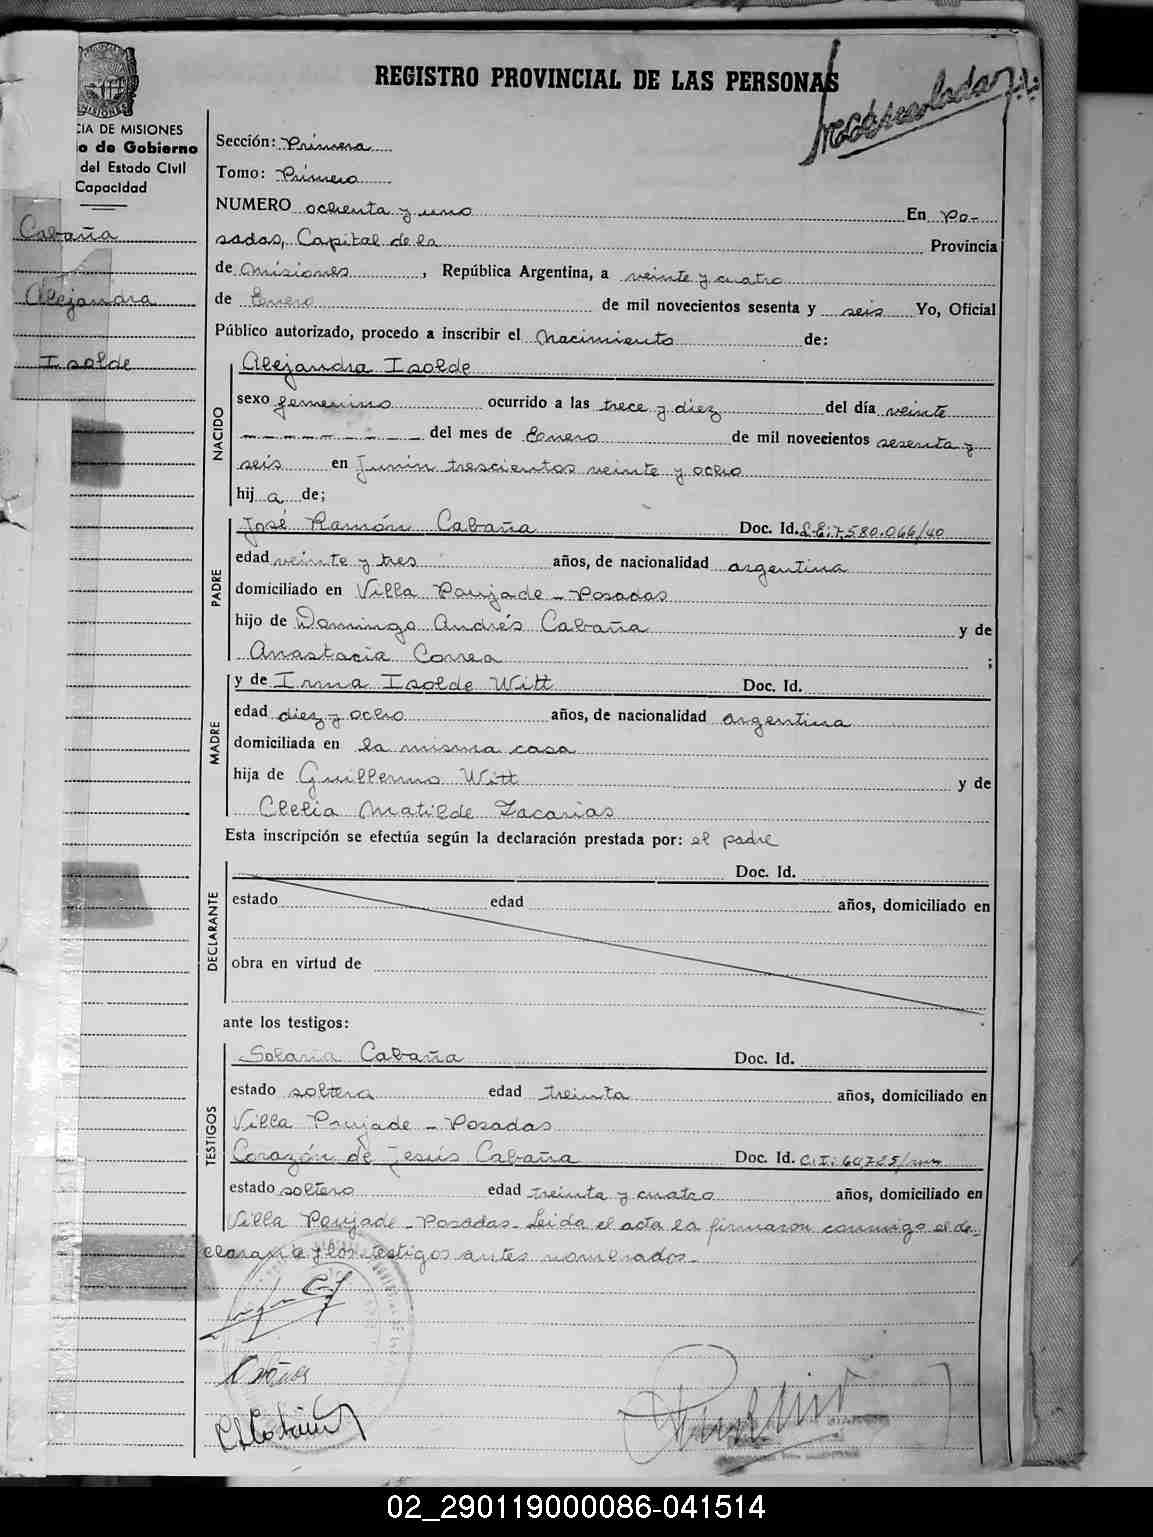 REGISTRO PROVINCIAL DE LAS PERSONAS
CIA DE MISIONES
o de Gobierno
del Estado Civil
Capacidad
Cabaña
Alejandra
Isolde
Sección: Primera
Tomo: Primero
NUMERO ochenta y uno En Po-
sadas, Capital de la Provincia
de Misiones, República Argentina, a veinte y cuatro
de Enero de mil novecientos sesenta y seis Yo, Oficial
Público autorizado, procedo a inscribir el Nacimiento de:
NACIDO
Alejandra Isolde
sexo femenino ocurrido a las trece y diez del día veinte
--------- del mes de Enero de mil novecientos sesenta y
seis en Junin trescientos veinte y ocho
hij a de;
PADRE
José Ramón Cabaña Doc. Id. L.E: 7.580.066/40
edad veinte y tres años, de nacionalidad argentina
domiciliado en Villa Poujade - Posadas
hijo de Domingo Andrés Cabaña y de
Anastacia Correa ;
MADRE
y de Irma Isolde Witt Doc. Id.
edad diez y ocho años, de nacionalidad argentina
domiciliada en la misma casa
hija de Guillermo Witt y de
Clelia Matilde Zacarias
Esta inscripción se efectúa según la declaración prestada por: el padre
DECLARANTE
Doc. Id.
estado edad años, domiciliado en
obra en virtud de
ante los testigos:
TESTIGOS
Cabaña Doc. Id.
estado soltera edad treinta años, domiciliado en
Villa Poujade - Posadas
Corazón de Jesús Cabaña Doc. Id. C.I:
estado soltero edad treinta y cuatro años, domiciliado en
Villa Poujade - Posadas - Leida el acta la firmaron conmigo el de-
clarante y los testigos antes nombrados.-
02_290119000086-041514